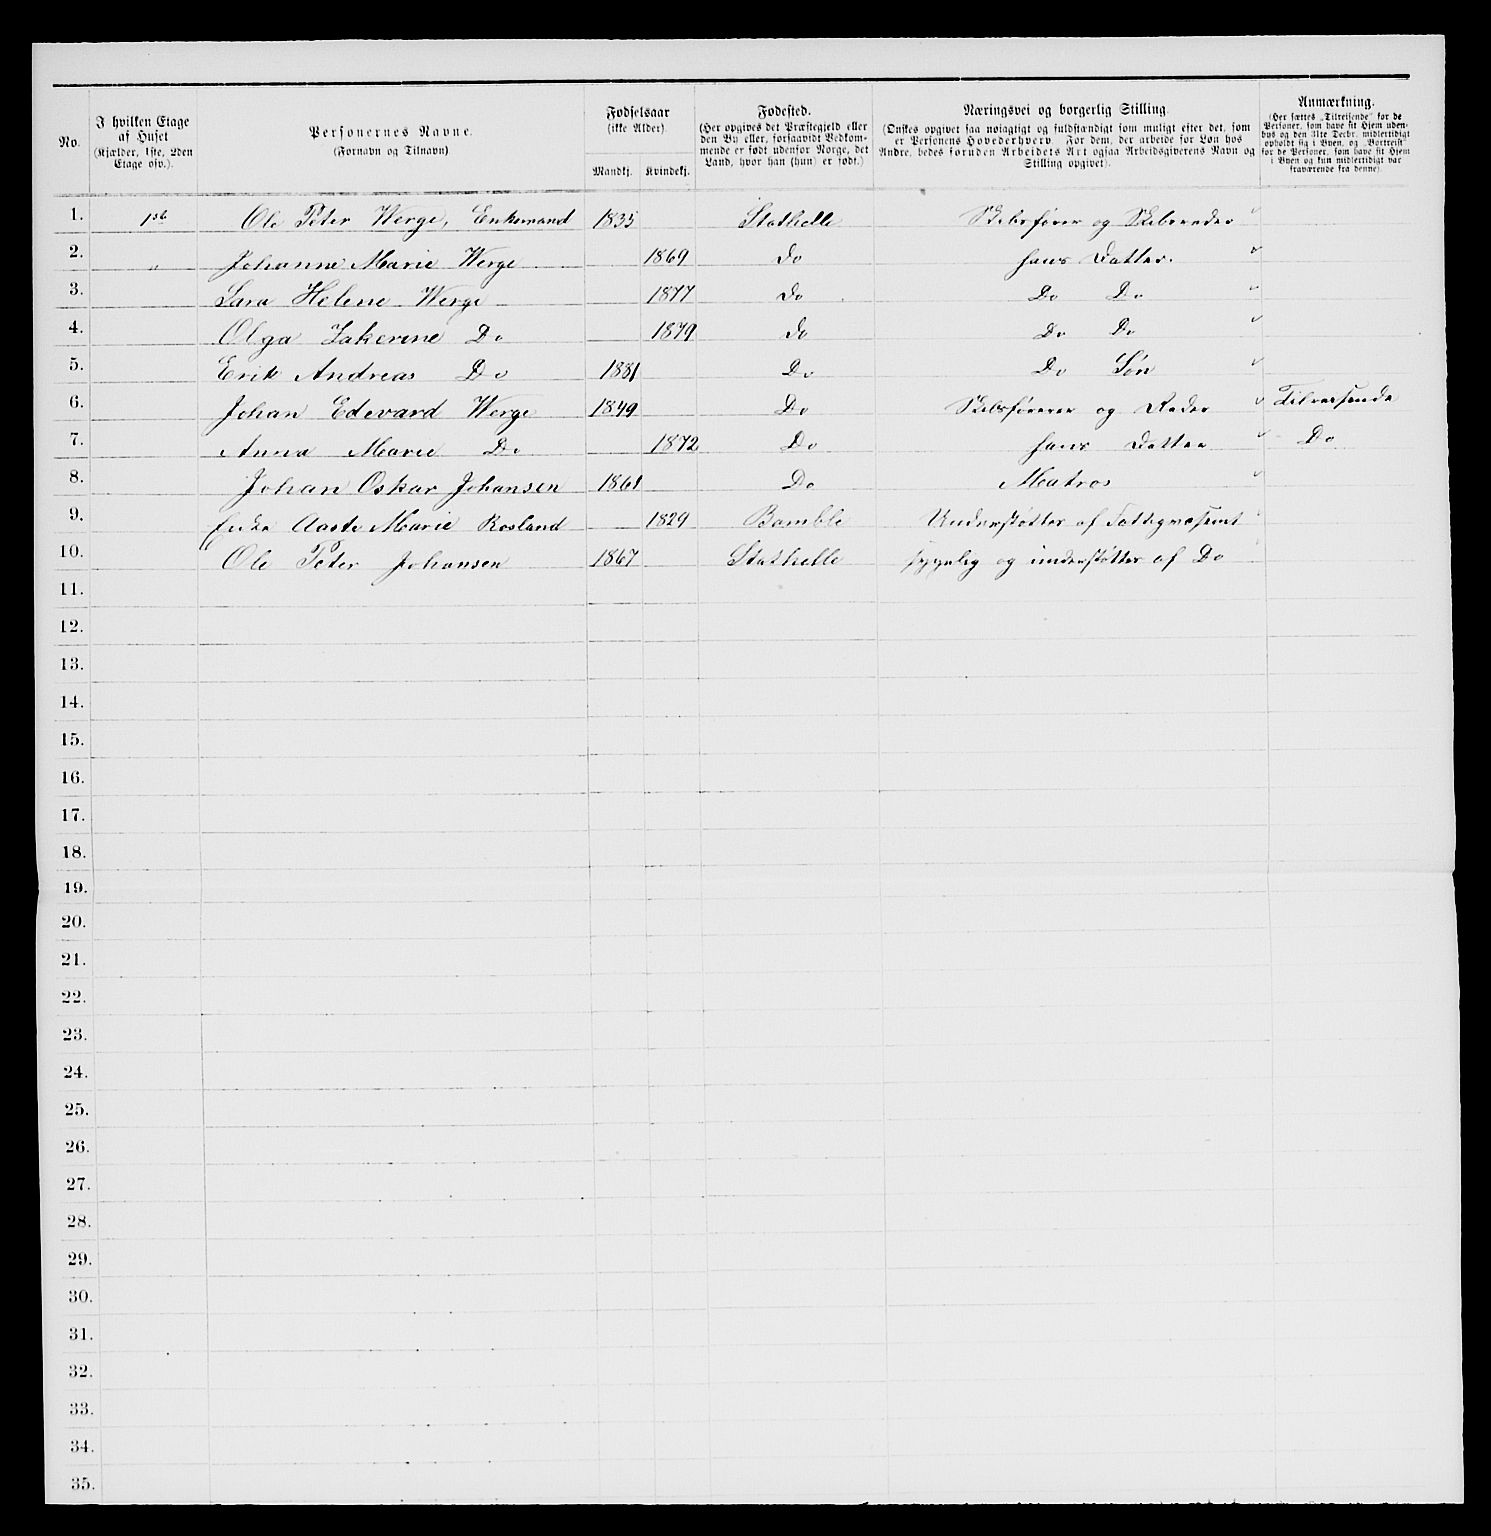 No. | I hvilken Etage af Huset (Kjælder, 1ste, 2den Etage osv.). | Personernes Navne. (Fornavn og Tilnavn) | Fødselsaar (ikke Alder). Mandkj. | Kvindekj. | Fødested. (Her opgives det Præstegjeld eller den By eller, forsaavidt Vedkommende er født udenfor Norge, det Land, hvor han (hun) er født.) | Næringsvei og borgerlig Stilling. (Ønskes opgivet saa nøiagtigt og fuldstændigt som muligt efter det, som er Personens Hovederhverv. For dem, der arbeide for Løn hos Andre, bedes foruden Arbeidets Art ogsaa Arbeidsgiverens Navn og Stilling opgivet). | Anmærkning. (Her sættes „Tilreisende" for de Personer, som have sit Hjem udenbys og den 31te Decbr. midlertidigt opholdt sig i Byen, og „Bortreist" for de Personer, som have sit Hjem i Byen og kun midlertidigt var fraværende fra denne).
1. 1st Ole Peter Werge, Enkemand 1835 Stathelle Skibsfører og Skibsreder
2. " Johanne Marie Werge 1869 Do hans Datter.
3. Sara Helene Werge 1877 Do Do Do
4. Olga Zakerine Do 1879 Do Do Do
5. Erik Andreas Do 1881 Do Do Søn
6. Johan Edevard Werge 1849 Do Skibsfører og Reder Tilreisende
7. Anna Marie Do 1872 Do hans Datter Do
8. Johan Oskar Johansen 1861 Do Matros
9. Enke Aaste Marie Rosland 1829 Bamble Understøttes af Fattigvæsenet
10. Ole Peter Johansen 1867 Stathelle sygelig og understøttes af Do
11.
12.
13.
14.
15.
16.
17.
18.
19.
20.
21.
22.
23.
24.
25.
26.
27.
28.
29.
30.
31.
32.
33.
34.
35.